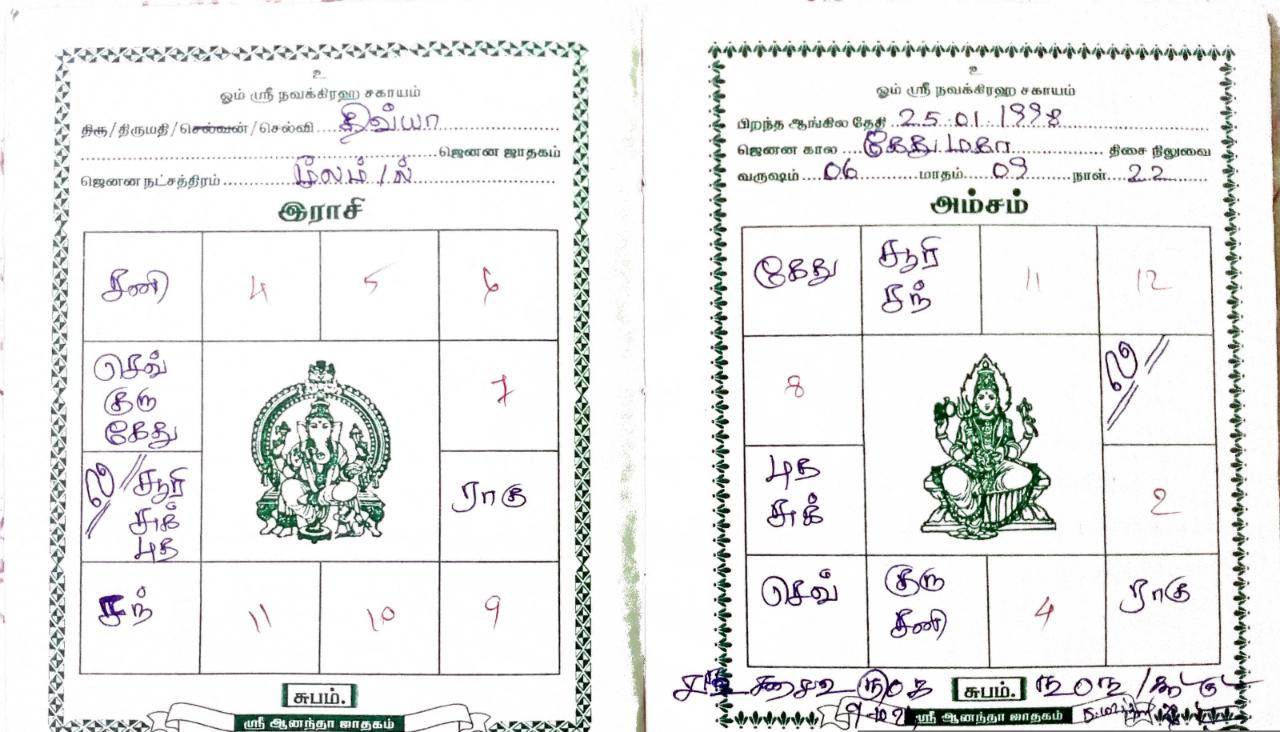 உ
ஓம் ஸ்ரீ நவக்கிரஹ சகாயம்
திரு/திருமதி/செல்வன்/செல்வி திவ்யா
ஜெனன ஜாதகம்
ஜெனன நட்சத்திரம் மூலம் /ல்
இராசி
சனி 4 5 6
செவ்
குரு
கேது
7
ல/ சூரி
சுக்
புத
ராகு
சந் 11 10 9
சுபம்.
ஸ்ரீ ஆனந்தா ஜாதகம்
உ
ஓம் ஸ்ரீ நவக்கிரஹ சகாயம்
பிறந்த ஆங்கில தேதி 25.01.1998
ஜெனன கால கேது மகா திசை நிலுவை
வருஷம் 06 மாதம் 09 நாள் 22
அம்சம்
கேது சூரி 11 12
சந்
8 ல//
புத
சுக்
2
செவ் குரு 4 ராகு
சனி
சுபம்.
ஸ்ரீ ஆனந்தா ஜாதகம்